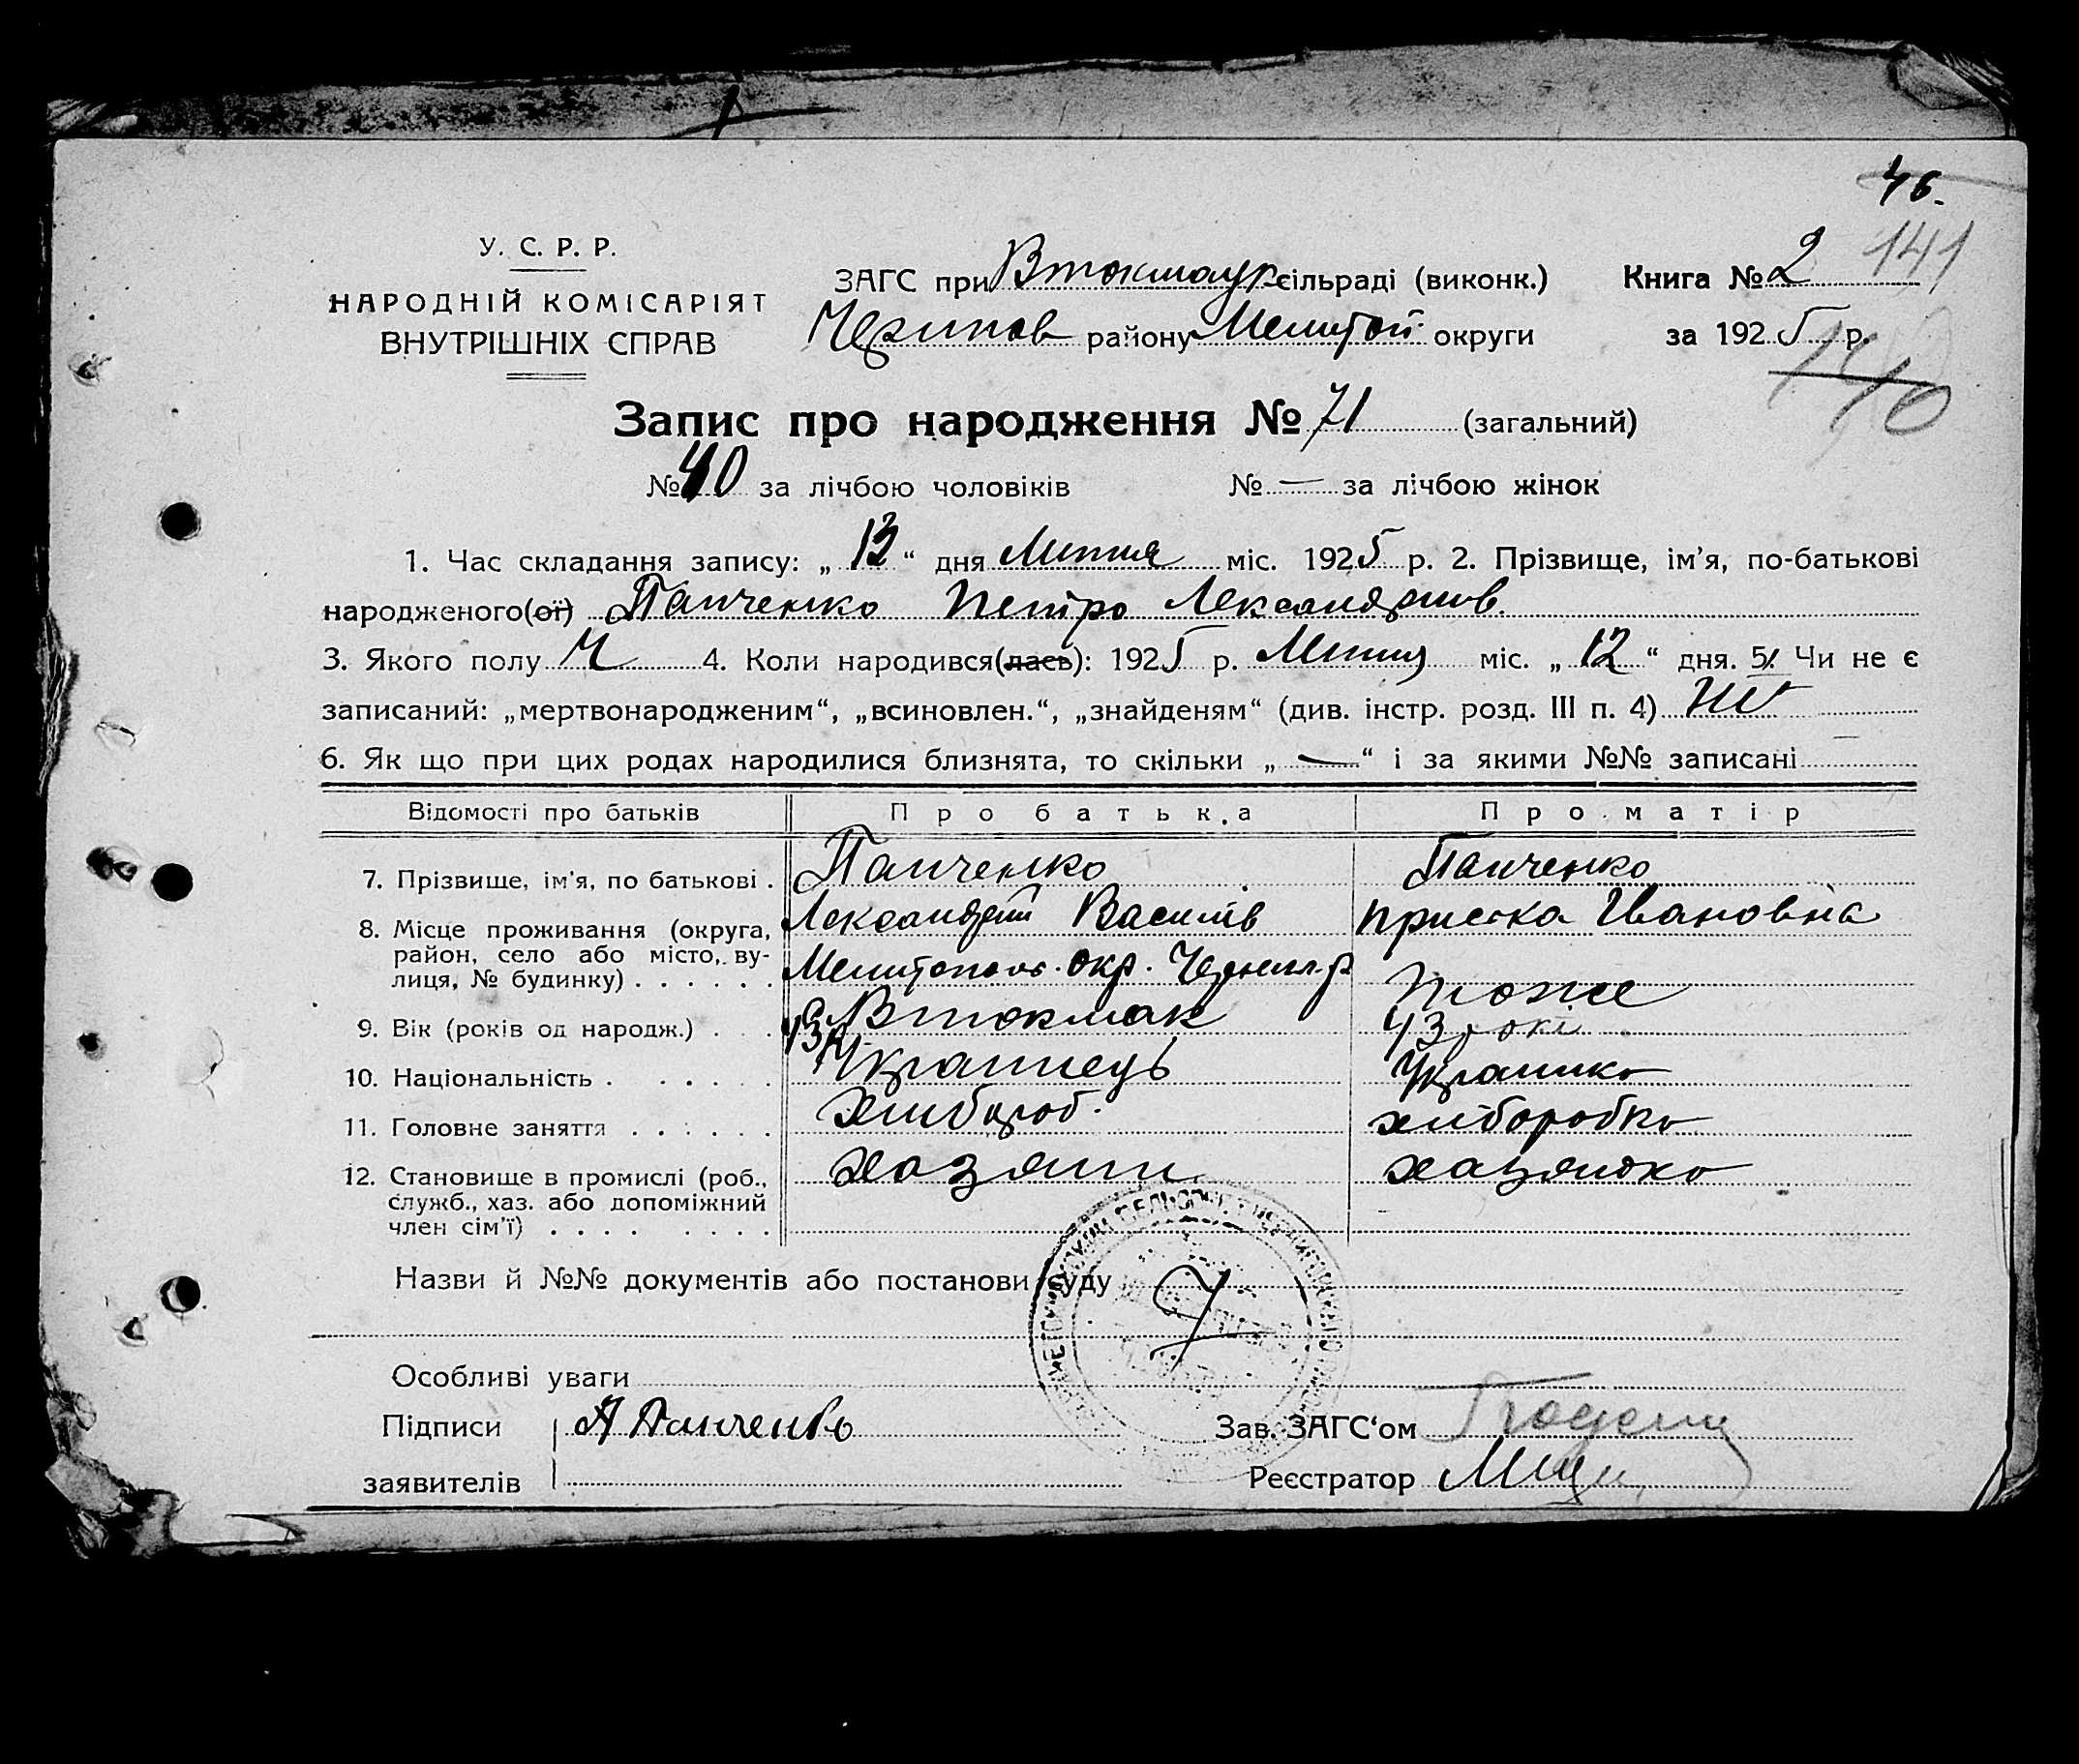 46.
У. С. Р. Р.
НАРОДНІЙ КОМІСАРІЯТ
ВНУТРІШНІХ СПРАВ
ЗАГС при Втокмацк сільраді (виконк.)
району Мелитоп. округи
Книга № 2 141
за 1925 р.
140
Запис про народження № 71 (загальний)
№ 40 за лічбою чоловіків № — за лічбою жінок
1. Час складання запису: „ 13 “ дня Липня міс. 1925 р. 2. Прізвище, ім’я, по-батькові
народженого(ої) Панченко Петро Лександров.
3. Якого полу Ч 4. Коли народився(лась): 1925 р. Липня міс. „ 12 “ дня. 5. Чи не є
записаний: „мертвонародженим“, „всиновлен.“, „знайденям“ (див. інстр. розд. III п. 4) Ні
6. Як що при цих родах народилися близнята, то скільки „ — “ і за якими №№ записані
Відомості про батьків Про батька Про матір
7. Прізвище, ім’я, по батькові . Панченко Панченко
Лександрій Василів Приська Ивановна
8. Місце проживання (округа,
район, село або місто, ву-
лиця, № будинку) . . . . . . Мелитополь. окр. р. тоже
с Втокмак
9. Вік (років од народж.) . . 43 р. 43 рокі
10. Національність . . . . . Українець Українка
11. Головне заняття . . . . . . хлібороб. хліборобка
12. Становище в промислі (роб.,
служб., хаз. або допоміжний
член сім’ї) . . . . . . . . хазяин хазяйка
Назви й №№ документів або постанови суду
Особливі уваги
Підписи А Панченко
заявителів
Зав. ЗАГС‘ом
Реєстратор